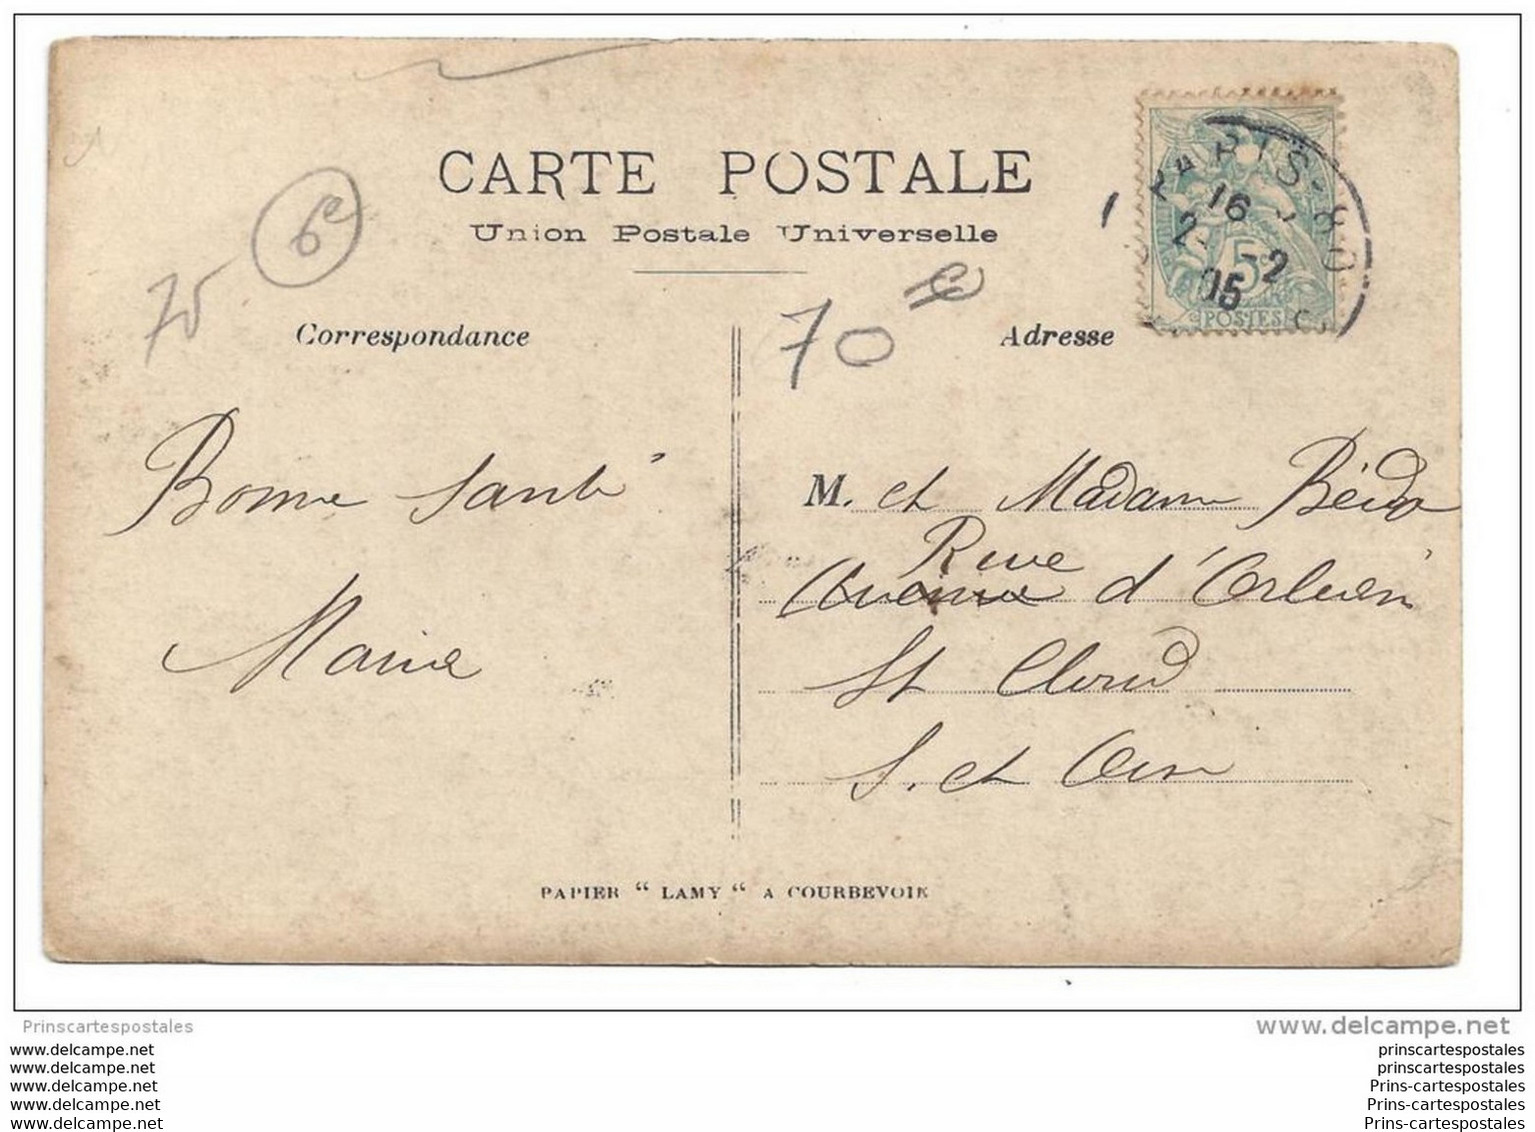 CARTE POSTALE
Union Postale Universelle
6e
75
70 e
Correspondance
Adresse
PARIS-80
16
2 -2
05
5c
POSTES
Bonne Santé
Marie
M. et Madame
Rue
Avenue d'Orléans
St Cloud
S. et Oise
PAPIER “ LAMY “ A COURBEVOIE
Prinscartespostales
www.delcampe.net
www.delcampe.net
www.delcampe.net
www.delcampe.net
www.delcampe.net
www.delcampe.net
prinscartespostales
prinscartespostales
Prins-cartespostales
Prins-cartespostales
Prins-cartespostales